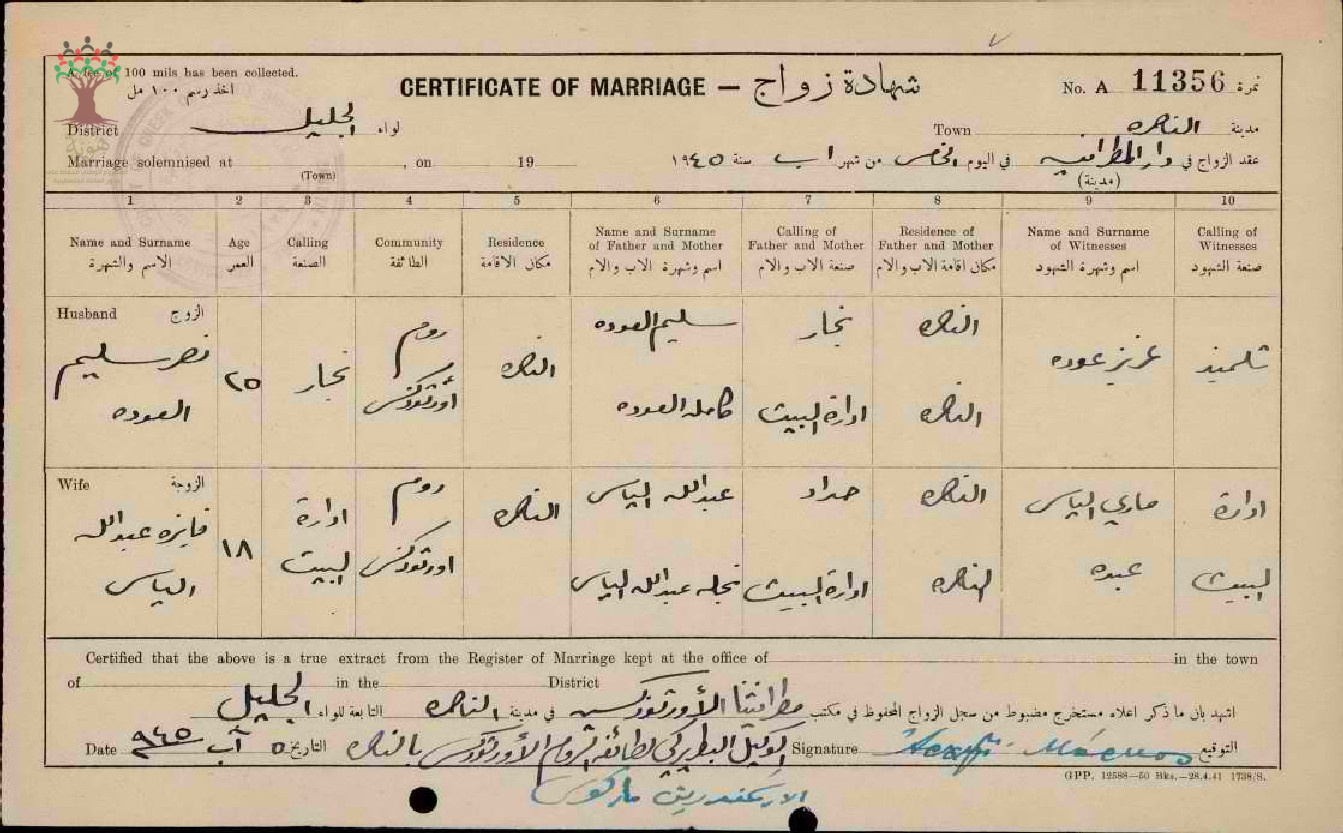 A fee of 100 mils has been collected.
اخذ رسم ١٠٠ مل
CERTIFICATE OF MARRIAGE — شهادة زواج
No. A 11356 نمرة
District الجليل لواء
Town الناصره مدينة
Marriage solemnised at , on 19
(Town)
عقد الزواج في دار المطرانيه في اليوم الخامس من شهر اب سنة ١٩٤٥
(مدينة)
1 2 3 4 5 6 7 8 9 10
Name and Surname
الاسم والشهرة
Age
العمر
Calling
الصنعة
Community
الطائفة
Residence
مكان الاقامة
Name and Surname
of Father and Mother
اسم وشهرة الاب والام
Calling of
Father and Mother
صنعة الاب والام
Residence of
Father and Mother
مكان اقامة الاب والام
Name and Surname
of Witnesses
اسم وشهرة الشهود
Calling of
Witnesses
صنعة الشهود
Husband الزوج
نصر سليم
العوده
٢٥
نجار
روم
أورثوذكس
الناصره
سليم العوده
كامله العوده
نجار
ادارة البيت
الناصره
الناصره
عزيز عوده
تلميذ
Wife الزوجة
فايزه عبدالله
الياس
١٨
ادارة
البيت
روم
اورثوذكس
الناصره
عبدالله الياس
نجله عبدالله الياس
حداد
ادارة البيت
الناصره
الناصره
ماري الياس
عبده
ادارة
البيت
Certified that the above is a true extract from the Register of Marriage kept at the office of in the town
of in the District
اشهد بان ما ذكر اعلاه مستخرج مضبوط من سجل الزواج المحفوظ في مكتب مطرانيتنا الأورثوذكسيه في مدينة الناصره التابعة للواء الجليل
Date ٩٤٥ آب ٥ التاريخ
الوكيل البطريركي لطائفة الروم الأورثوذكس بالناصره
Signature التوقيع
GPP. 12588—50 Bks.—28.4.41 1738/S.
الارشمندريت ماركوس